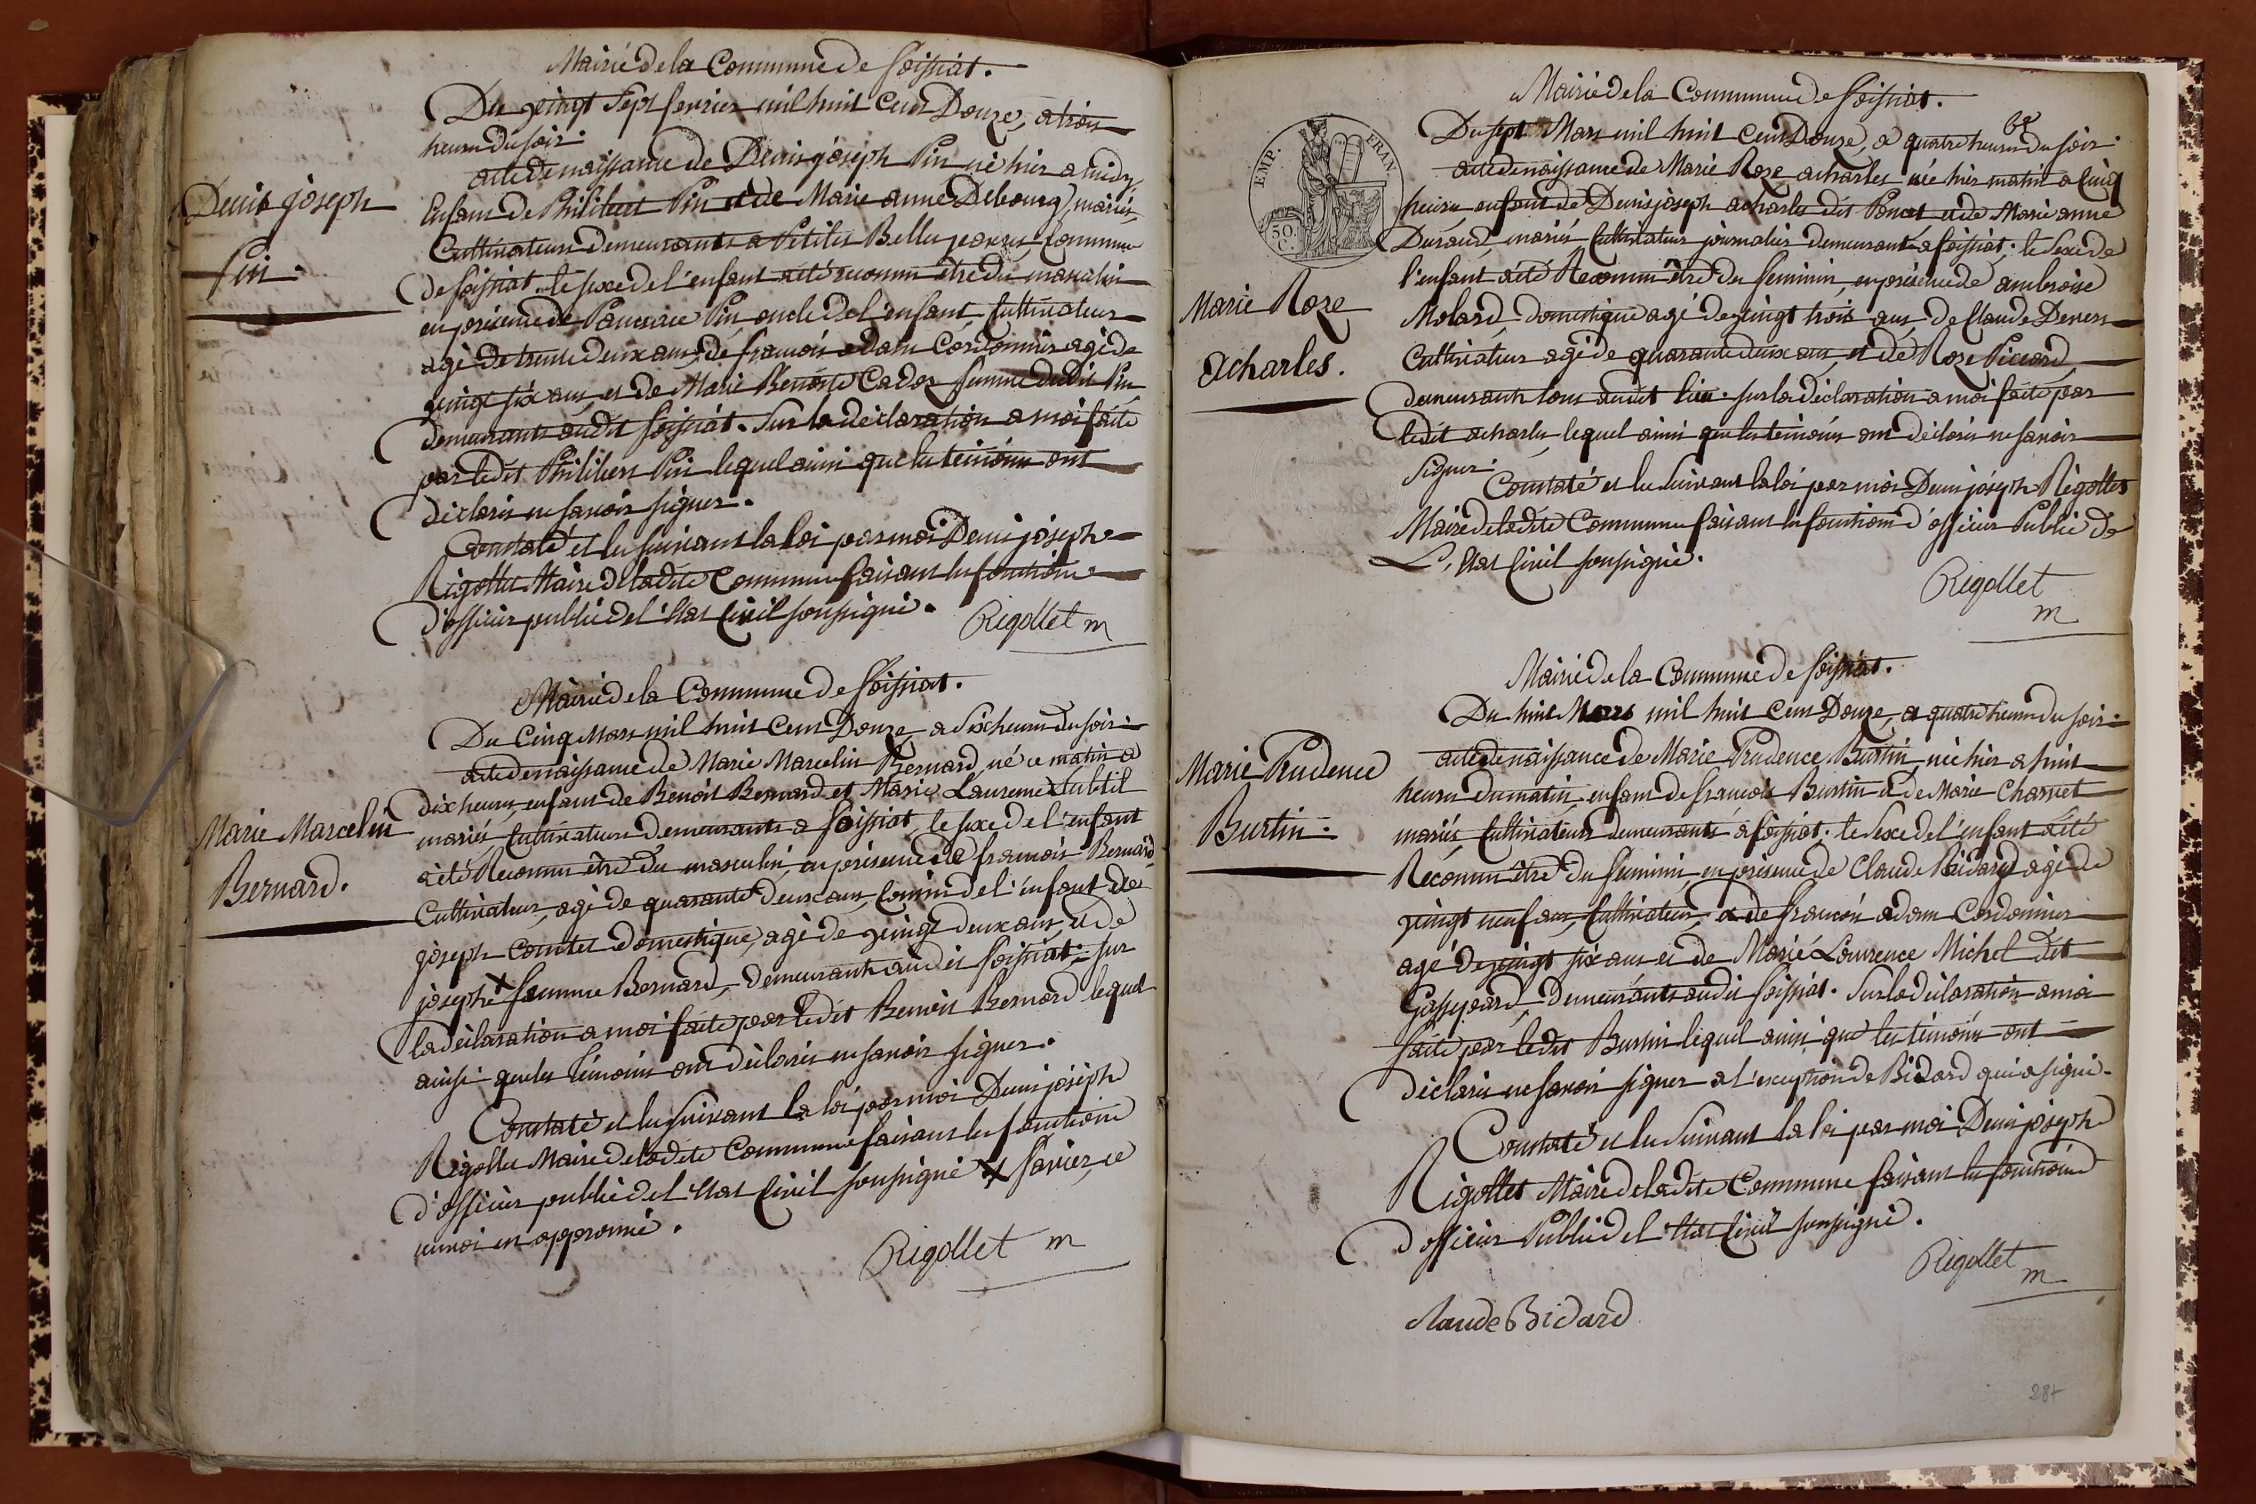 Mairie de la Commune de foissiat.
Du vingt Sept fevrier mil huit Cent Douze, a trois
heures du soir.
acte de naissance de Denis joseph Pin né hier a midy,
Enfant de Philibert Pin et de Marie anne Debourg, mariés,
Cultivateurs demeurants a Petites Belles vavres, Commune
de foissiat. le sexe de l'enfant a été reconnu être du masculin
en présence de Pancrace Pin oncle de l'enfant, Cultivateur
agé de trente deux ans, de francois adam Cordonnier agé de
vingt six ans, et de Marie Benoite Cador femme dudit Pin
demeurants audit foissiat. Sur la déclaration a moi faite
par ledit Philibert Pin lequel ainsi que les témoins ont
déclarés ne savoir signer.
Constaté et lu suivant la loi par moi Denis joseph
Rigollet Maire de ladite Commune faisant les fonctions
d'officier public de l'état Civil soussigné.
Rigollet m
Denis joseph
Pin.
Mairie de la Commune de foissiat.
Du Cinq Mars mil huit Cent Douze a Six heures du soir.
acte de naissance de Marie Marcelin Bernard, né ce matin a
dix heures, enfant de Benoit Bernard et Marie Laurence Subtil
mariés Cultivateurs demeurants a foissiat, le sexe de l'enfant
a été Reconnu être du masculin, en présence de francois Bernard
Cultivateur, agé de quarante deux ans, Cousin de l'enfant de
joseph Comtet domestique, agé de vingt deux ans, et de
josephe x femme Bernard, demeurants audit foissiat. sur
la déclaration a moi faite par ledit Benoit Bernard lequel
ainsi que les témoins ont déclarés ne savoir signer.
Constaté et lu suivant la loi par moi Denis joseph
Rigollet Maire de ladite Commune faisant les fonctions
d'officier public de l'état Civil soussigné x favier, ce
renvoi en approuvé.
Rigollet m
Marie Marcelin
Bernard.
Mairie de la Commune de foissiat.
Du sept Mars mil huit Cent Douze, a quatre heures du soir.
acte de naissance de Marie Roze acharles née hier matin a Cinq
heures enfant de Denis joseph acharles dit Poncet et de Marie anne
Durand, mariés Cultivateurs journaliers demeurants a foissiat. le sexe de
l'enfant a été Reconnu être du feminin, en présence de ambroise
Molard domestique agé de vingt trois ans, de Claude
Cultivateur agé de quarante deux ans, et de Roze Piccard,
demeurants tous audit lieu. sur la déclaration a moi faite par
ledit acharles, lequel ainsi que les témoins ont déclarés ne savoir
signer.
Constaté et lu suivant la loi par moi Denis joseph Rigollet
Maire de ladite Commune faisant les fonctions d'officier Public de
L'état Civil soussigné.
Rigollet
m
EMP. FRAN.
50.
C.
Marie Roze
acharles.
Mairie de la Commune de foissiat.
Du huit Mars mil huit Cent Douze, a quatre heures du soir.
acte de naissance de Marie Prudence Burtin, née hier a huit
heures du matin, enfant de francois Burtin et de Marie Charvet
mariés, Cultivateurs demeurants a foissiat. le sexe de l'enfant a été
Reconnu être du feminin, en présence de Claude Bidard agé de
vingt neuf ans, Cultivateur, et de francois adam Cordonnier
agé de vingt six ans et de Marie Laurence Michel dit
demeurants audit foissiat. Sur la déclaration a moi
faite par ledit Burtin lequel ainsi que les témoins ont
déclarés ne savoir signer a l'exception de Bidard qui a signé.
Constaté et lu Suivant la loi par moi Denis joseph
Rigollet Maire de ladite Commune faisant les fonctions
d'officier Public de l'état Civil soussigné.
Rigollet
m
Claude Bidard
Marie Prudence
Burtin.